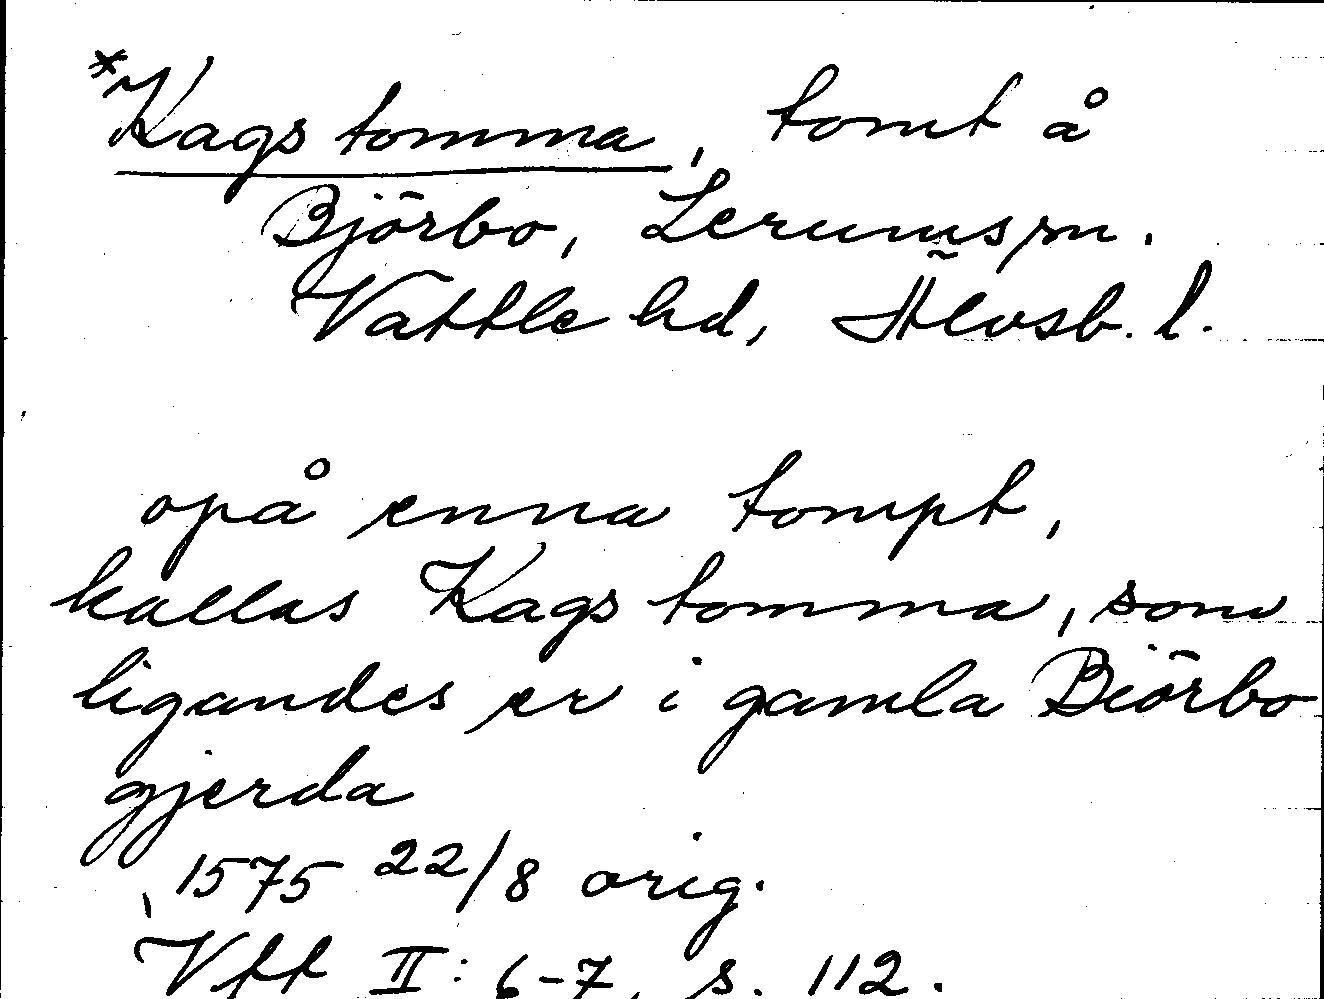 *Kags tomma, tomt å
Björbo, Lerums sn.
Vättle hd, Älvsb. l.
opå enna tompt,
kallas Kags tomma, som
ligandes er i gamla Biörbo
gjerda
1575 22/8 orig.
Vft II: 6-7, s. 112.